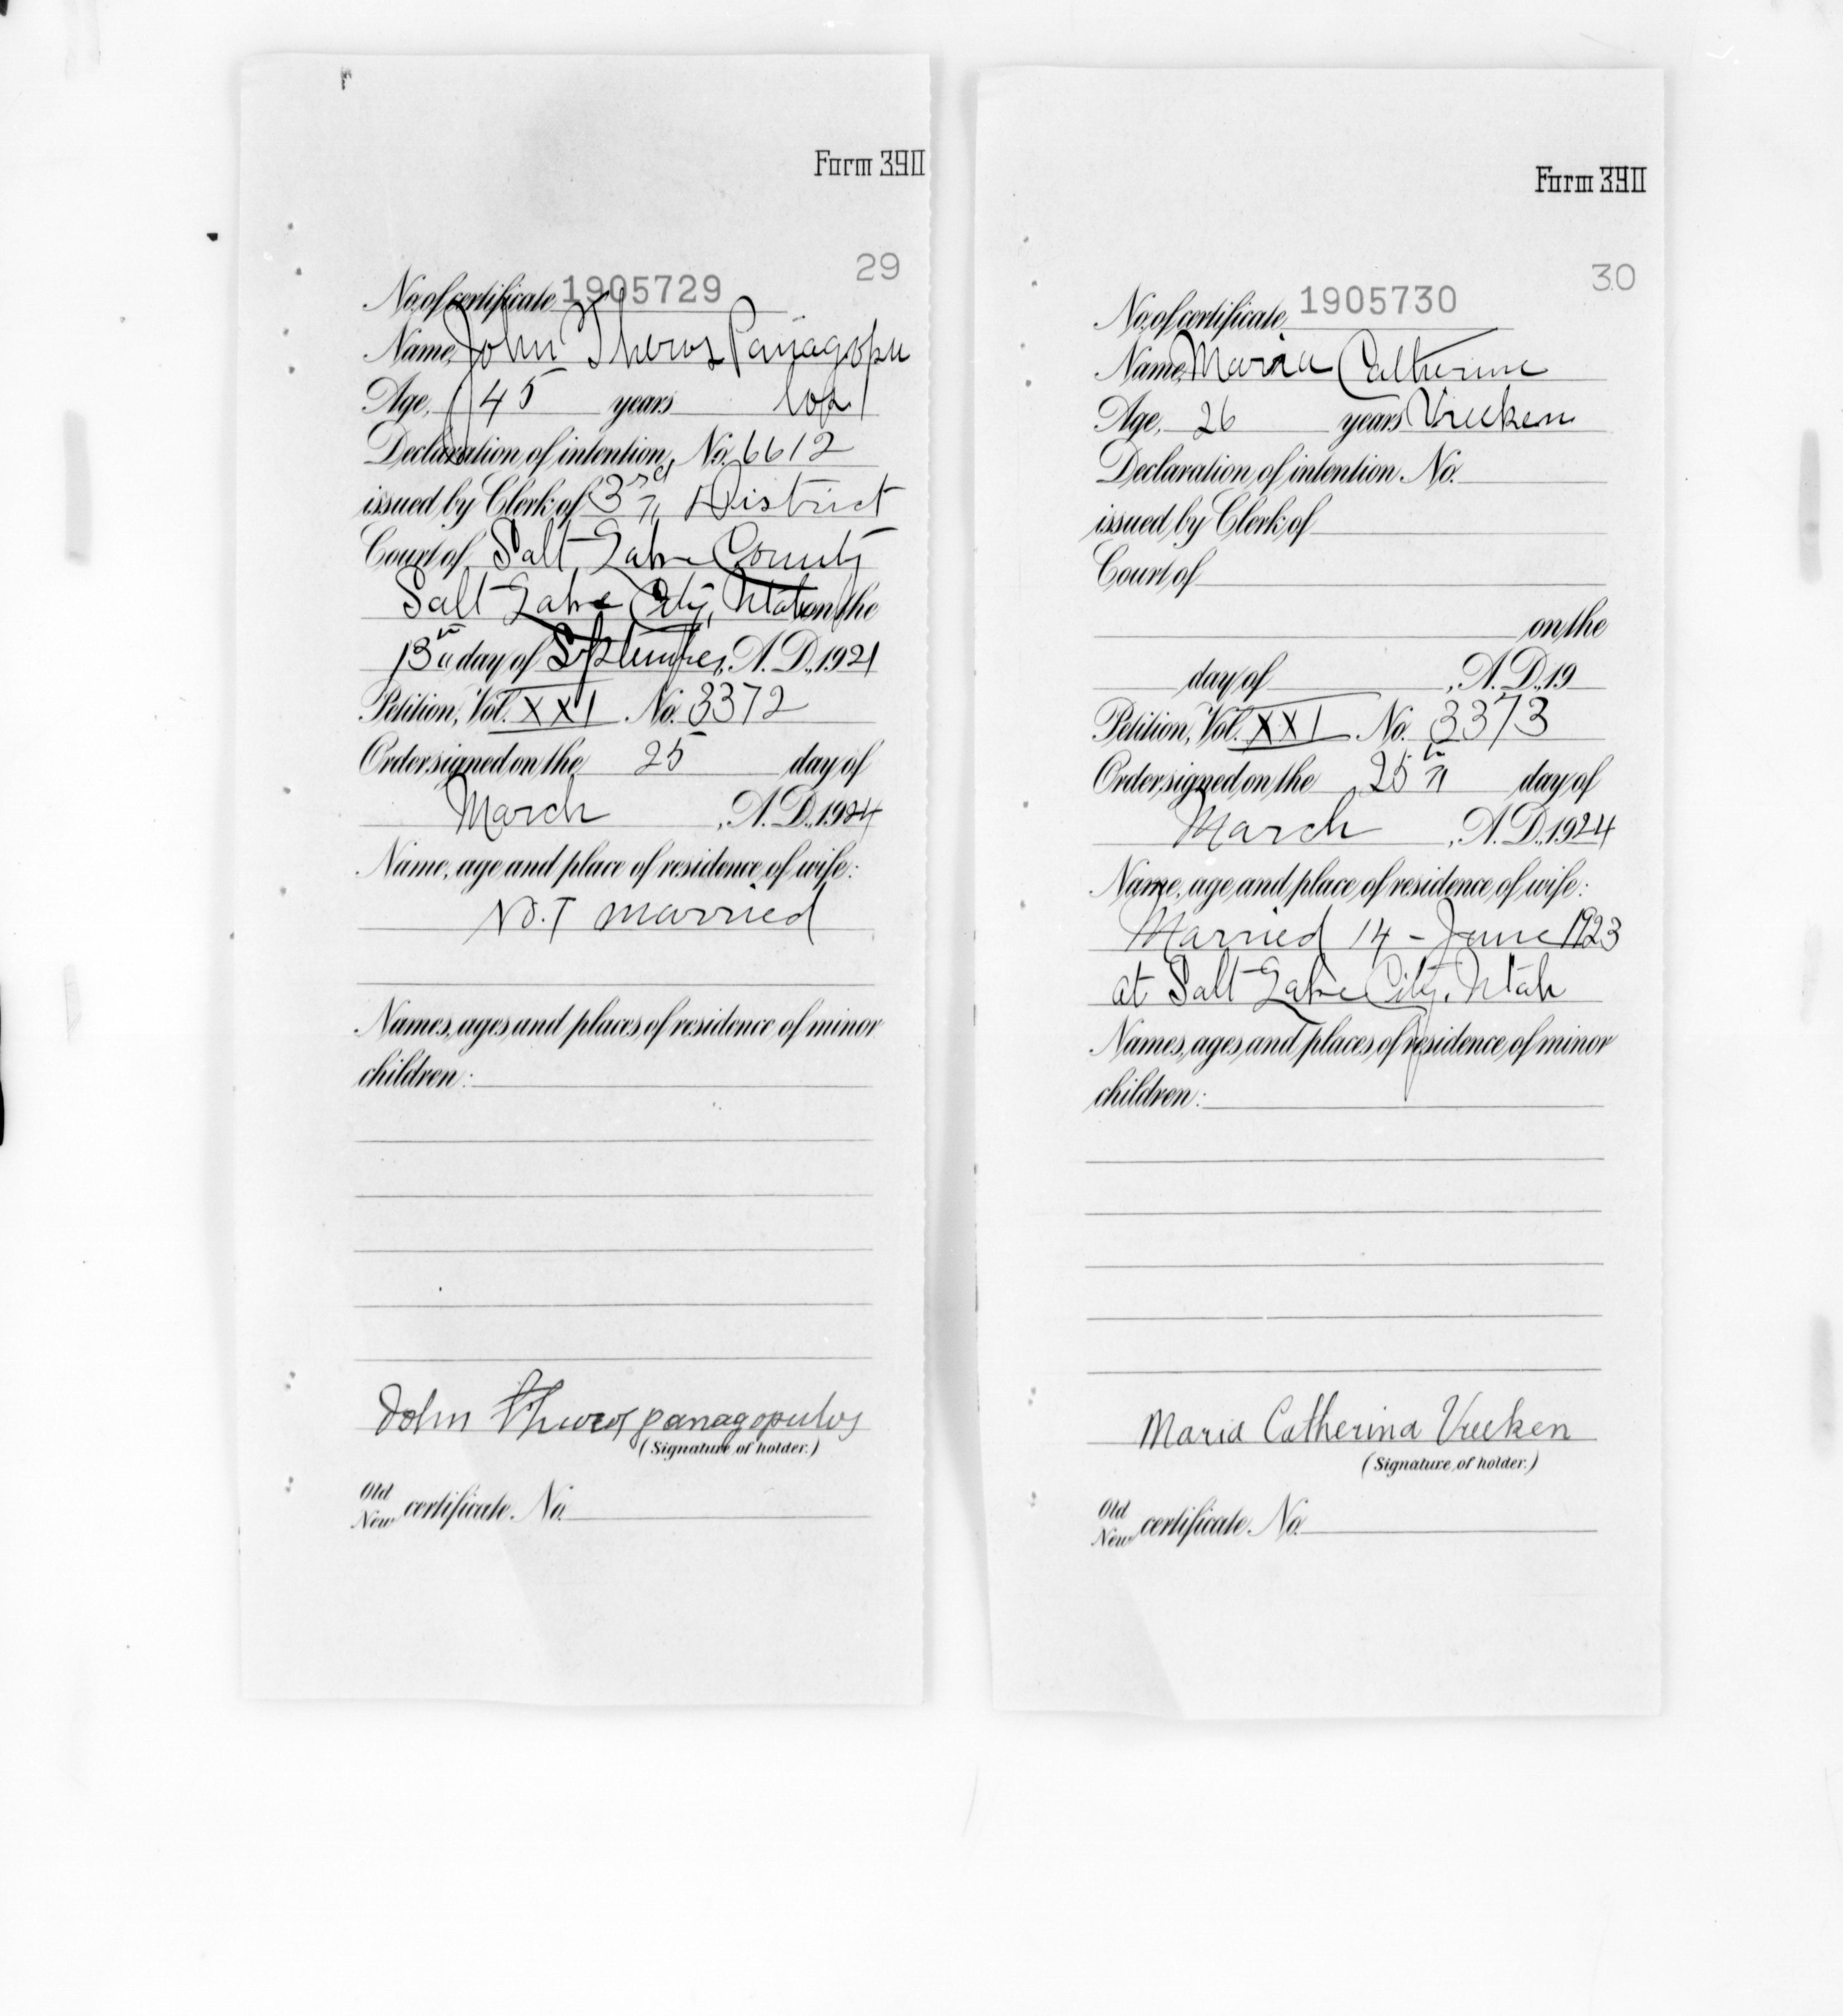 Form 390
29
No. of certificate 1905729
Name, John Theros Panagopu
Age, 45 years los
Declaration of intention, No. 6612
issued by Clerk of 3rd District
Court of Salt Lake County
Salt Lake City, Utah on the
13th day of September, A.D., 1921
Petition, Vol. XXI No. 3372
Order signed on the 25 day of
March, A.D., 1924
Name, age and place of residence of wife:
Not married
Names, ages and places of residence of minor
children:
John Theros panagopulos
(Signature of holder.)
Old
New certificate No.
Form 390
30
No. of certificate 1905730
Name, Maria Catherina
Age, 26 years Vrecken
Declaration of intention No.
issued by Clerk of
Court of
on the
day of , A.D., 19
Petition, Vol. XXI No. 3373
Order signed on the 25th day of
March, A.D., 1924
Name, age and place of residence of wife:
Married 14 - June 1923
at Salt Lake City, Utah
Names, ages and places of residence of minor
children:
Maria Catherina Vrecken
(Signature of holder.)
Old
New certificate No.